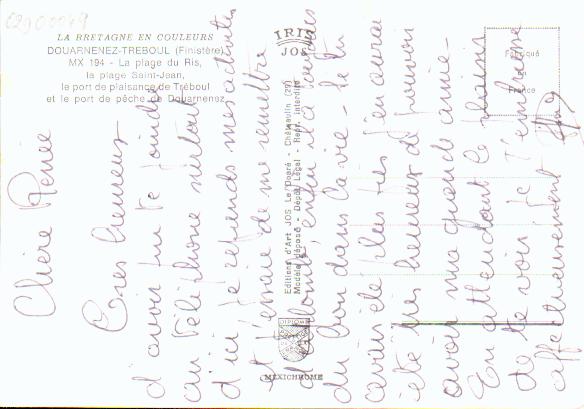 LA BRETAGNE EN COULEURS
DOUARNENEZ-TREBOUL (Finistère)
MX 194 - La plage du Ris,
la plage Saint-Jean,
le port de plaisance de Tréboul
et le port de pêche de Douarnenez
IRIS
JOS
Fabriqué
en
France
Editions d'Art JOS Le Doaré - Châteaulin (29)
Modèle déposé - Dépôt Légal - Repr. interdite
MEXICHROME
Chère Renée
Très heureux
d'avoir pu te joindre
au téléphone surtout
d'ici je reprends mes activités
j'essaie de me remettre
d'aplomb, enfin il y a toujours
du bon dans la vie - Si tu
avais été plus près j'en aurai
été très heureux de pouvoir
avoir une grande amie -
En attendant le plaisir
de te voir je t'embrasse
affectueusement